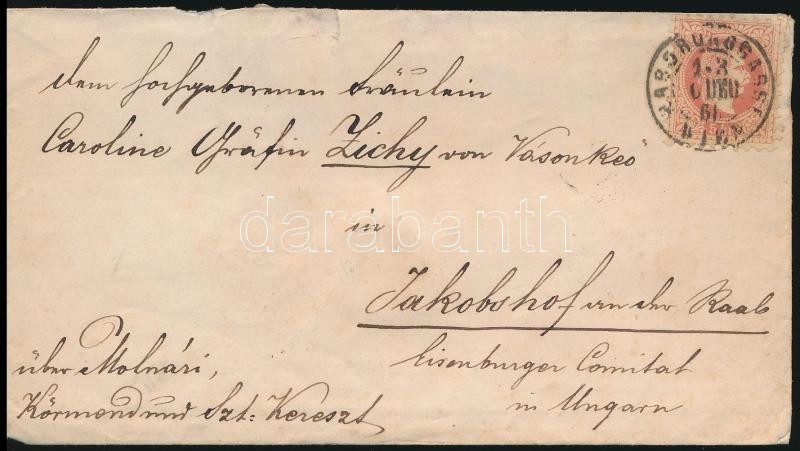 dem hochgeborenen Fräulein
Caroline Gräfin Zichy von Vásonkeö
in
Jakobshof an der Raab
Eisenburger Comitat
in Ungarn
über Molnári,
Körmend und Szt: Kereszt
WIEN
darabanth